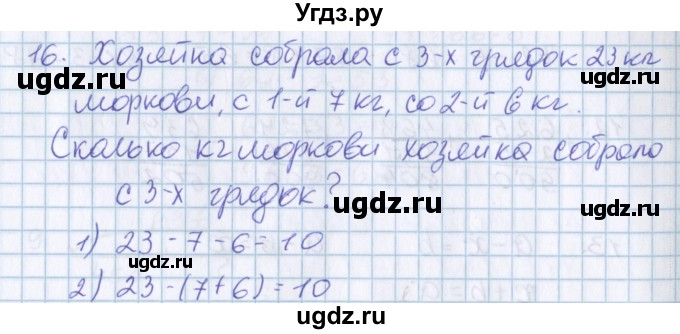 Угдз.ру
16. Хозяйка собрала с 3-х грядок 23 кг
моркови, с 1-й 7 кг, со 2-й 6 кг.
Сколько кг моркови хозяйка собрала
с 3-х грядок?
1) 23 - 7 - 6 = 10
2) 23 - (7 + 6) = 10
ugdz.ru
ugdz.ru
ugdz.ru
ugdz.ru
ugdz.ru
ugdz.ru